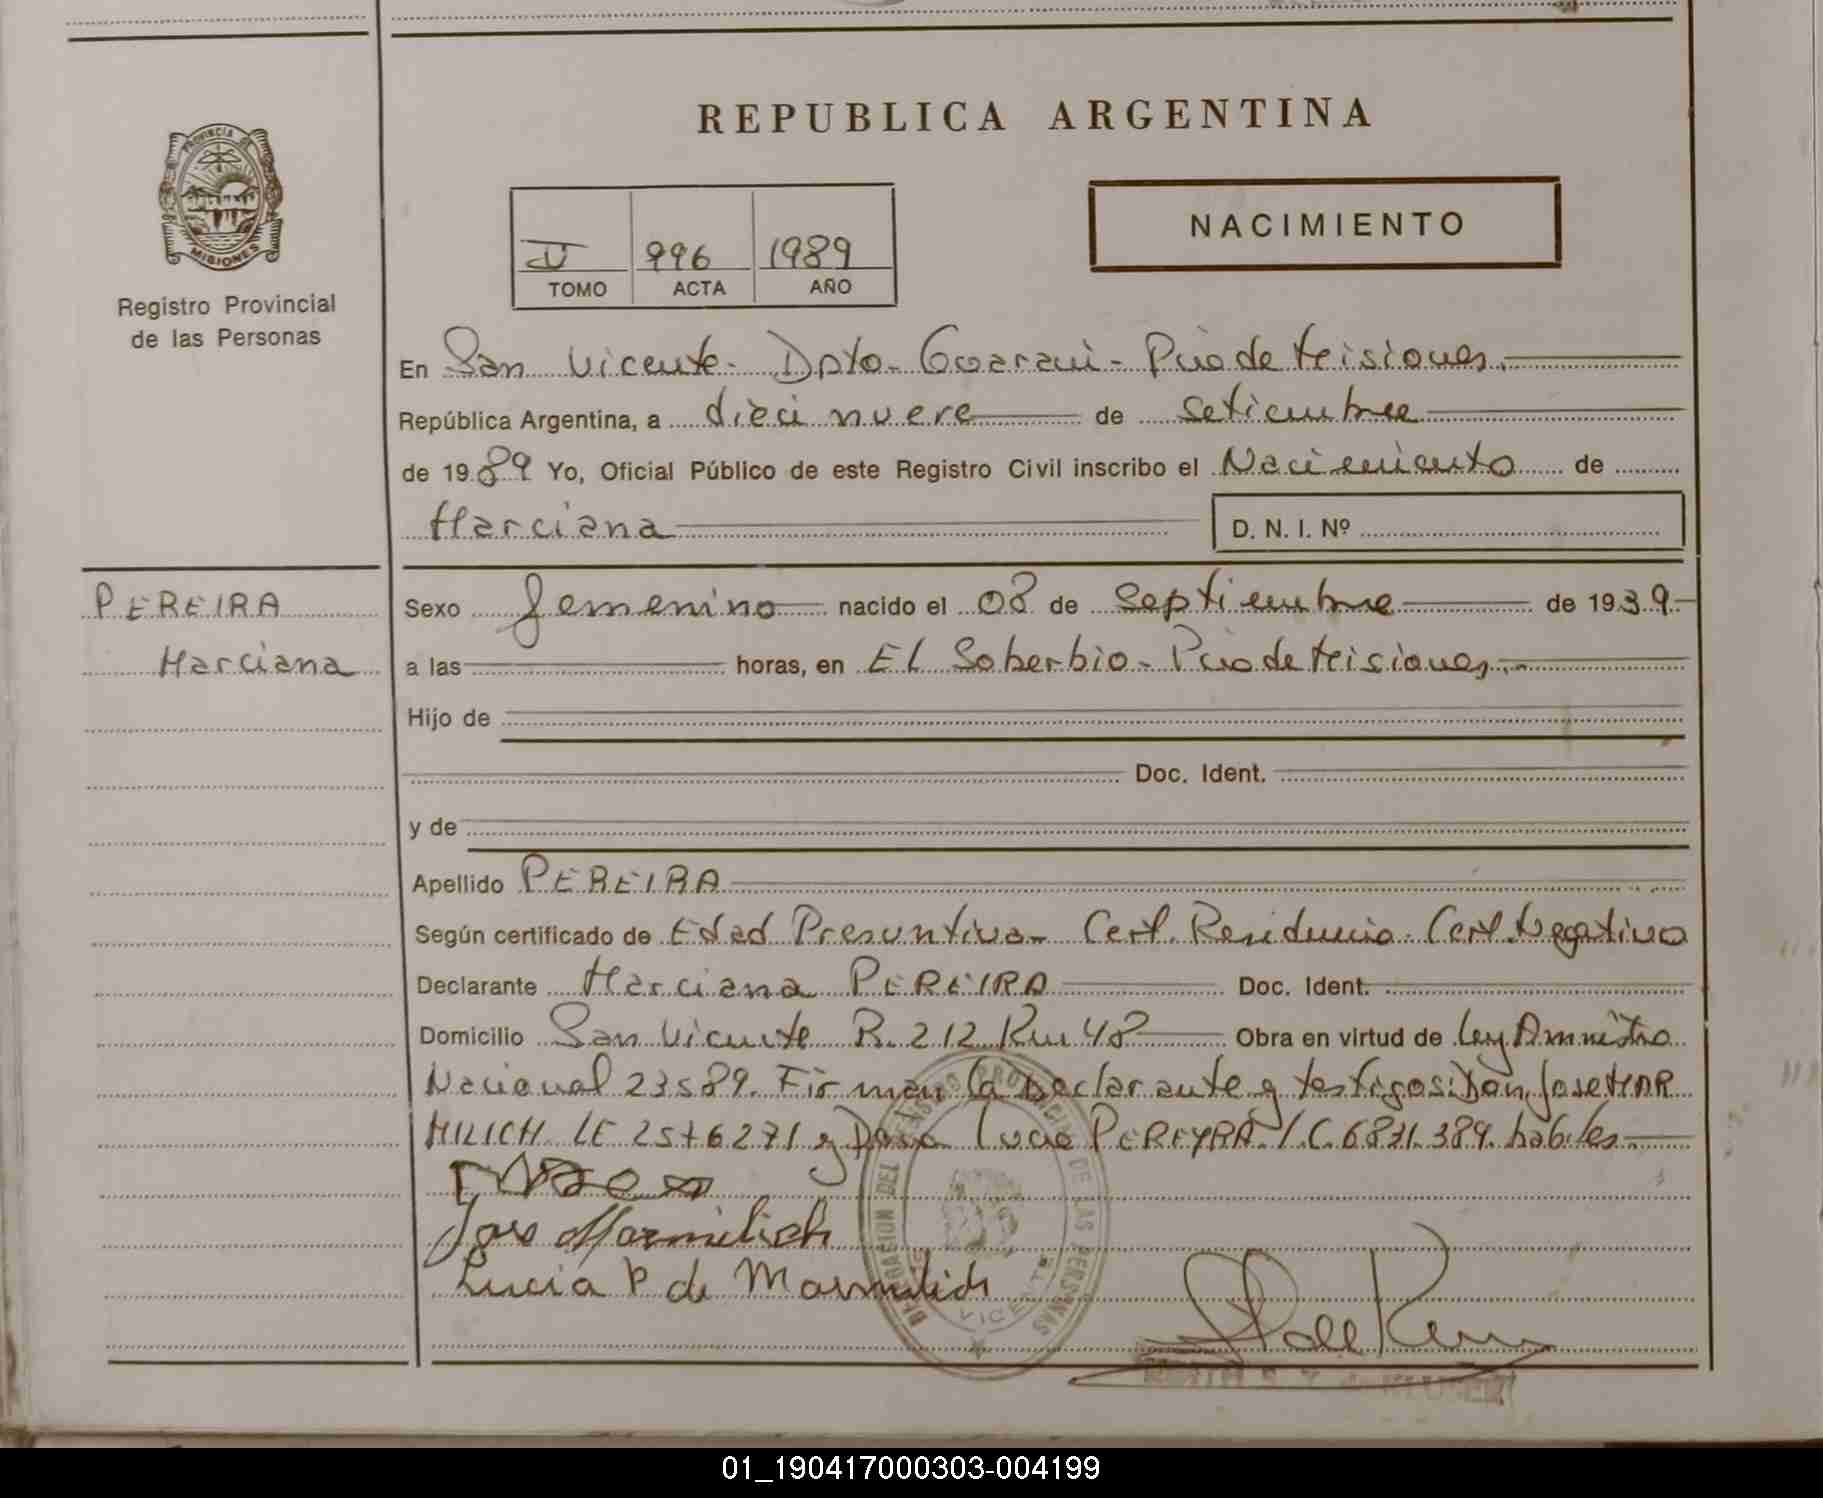 REPUBLICA ARGENTINA
PROVINCIA DE
MISIONES
Registro Provincial
de las Personas
NACIMIENTO
II 996 1989
TOMO ACTA AÑO
En San Vicente - Dpto - Guarani - Pcia de Misiones.
República Argentina, a dieci nueve de setiembre
de 1989 Yo, Oficial Público de este Registro Civil inscribo el Nacimiento de
Marciana D. N. I. Nº
PEREIRA
Marciana
Sexo femenino nacido el 08 de Septiembre de 1939
a las horas, en El Soberbio - Pcia de Misiones.
Hijo de
Doc. Ident.
y de
Apellido PEREIRA
Según certificado de Edad Presuntiva - Cert. Residencia. Cert. Negativo
Declarante Marciana PEREIRA Doc. Ident.
Domicilio San Vicente R. 212 Km 48 Obra en virtud de Ley Amnistia
Nacional 23589. Firman la Declarante y testigos: Don Jose MAR
MILICH LE y Doña Lucia PEREYRA habiles.
Jose Marmilich
Lucia P de Marmilich
DELEGACION DEL PROVINCIAL DE LAS PERSONAS
VICENTE
01_190417000303-004199